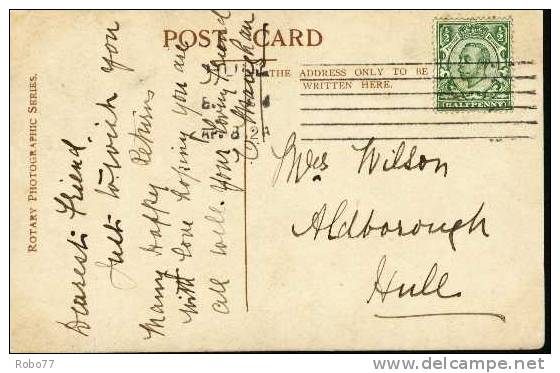 POST CARD
THE ADDRESS ONLY TO BE
WRITTEN HERE.
HALFPENNY
ROTARY PHOTOGRAPHIC SERIES.
Dearest Friend
Just to wish you
Many Happy Returns
with love hoping you are
all well. Your loving Friend
Mrs Wilson
Aldborough
Hull
Robo77
delcampe.net